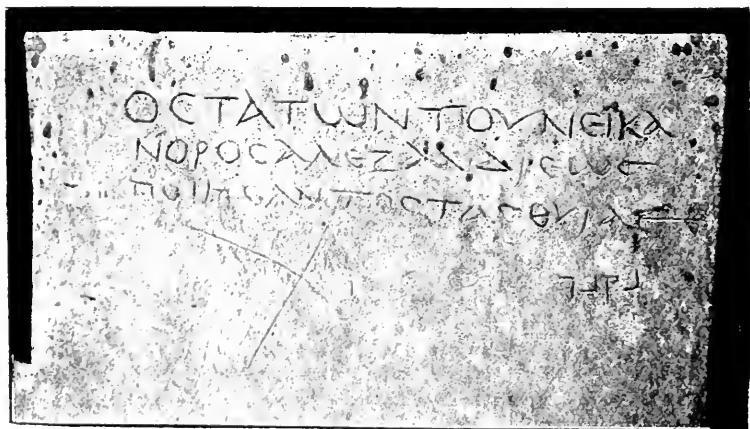 ΟϹΤΑΤωΝΤΟΥΝΕΙΚΑ
ΝΟΡΟϹΑΛΕΞΑΝΔΡΕωϹ
ΠΟΙΗϹΑΝΤΟϹΤΑϹΘΥΡΑϹ
נקנר